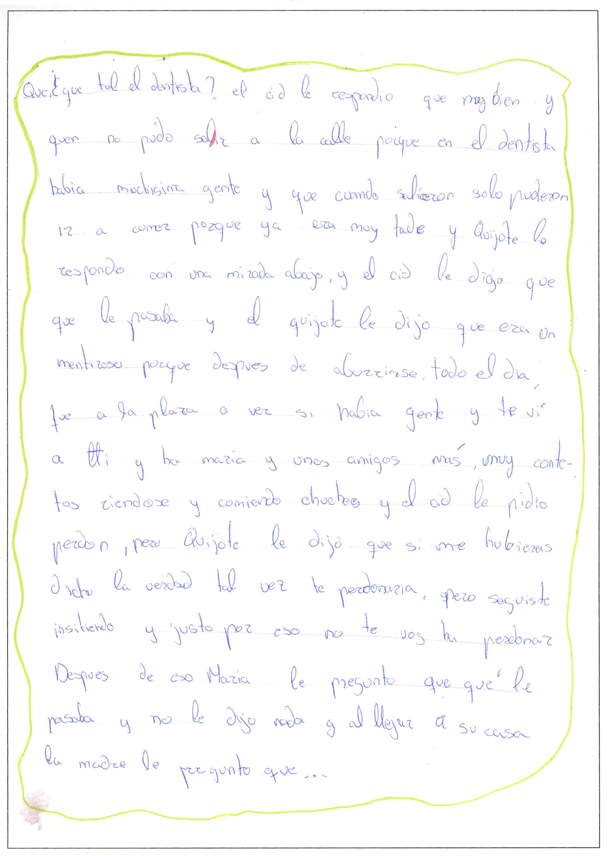 Que,¿que tal el dentista? el cid le respondio que muy bien y
quen no pudo salir a la calle porque en el dentista
babia muchisima gente y que cuando salieron solo puderon
ir a comer porque ya era muy tade y Quijote lo
respondo con una mirada abajo, y el cid le digo que
que le pasaba y el quijote le dijo que era un
mentiroso porque despues de aburrirse, todo el dia,
fue a la plaza a ver si habia gente y te ví
a tti y ha maria y unos amigos más, muy conte-
tos riendose y comiendo chuches y el cid le pidio
perdon, pero Quijote le dijo que si me hubieras
dicho la verdad tal vez te perdonaria, pero seguiste
insitiendo y justo por eso no te voy ha perdonar
Despues de eso Maria le pregunto que qué le
pasaba y no le dijo nada y al llejar a su casa
la madre le pregunto que...